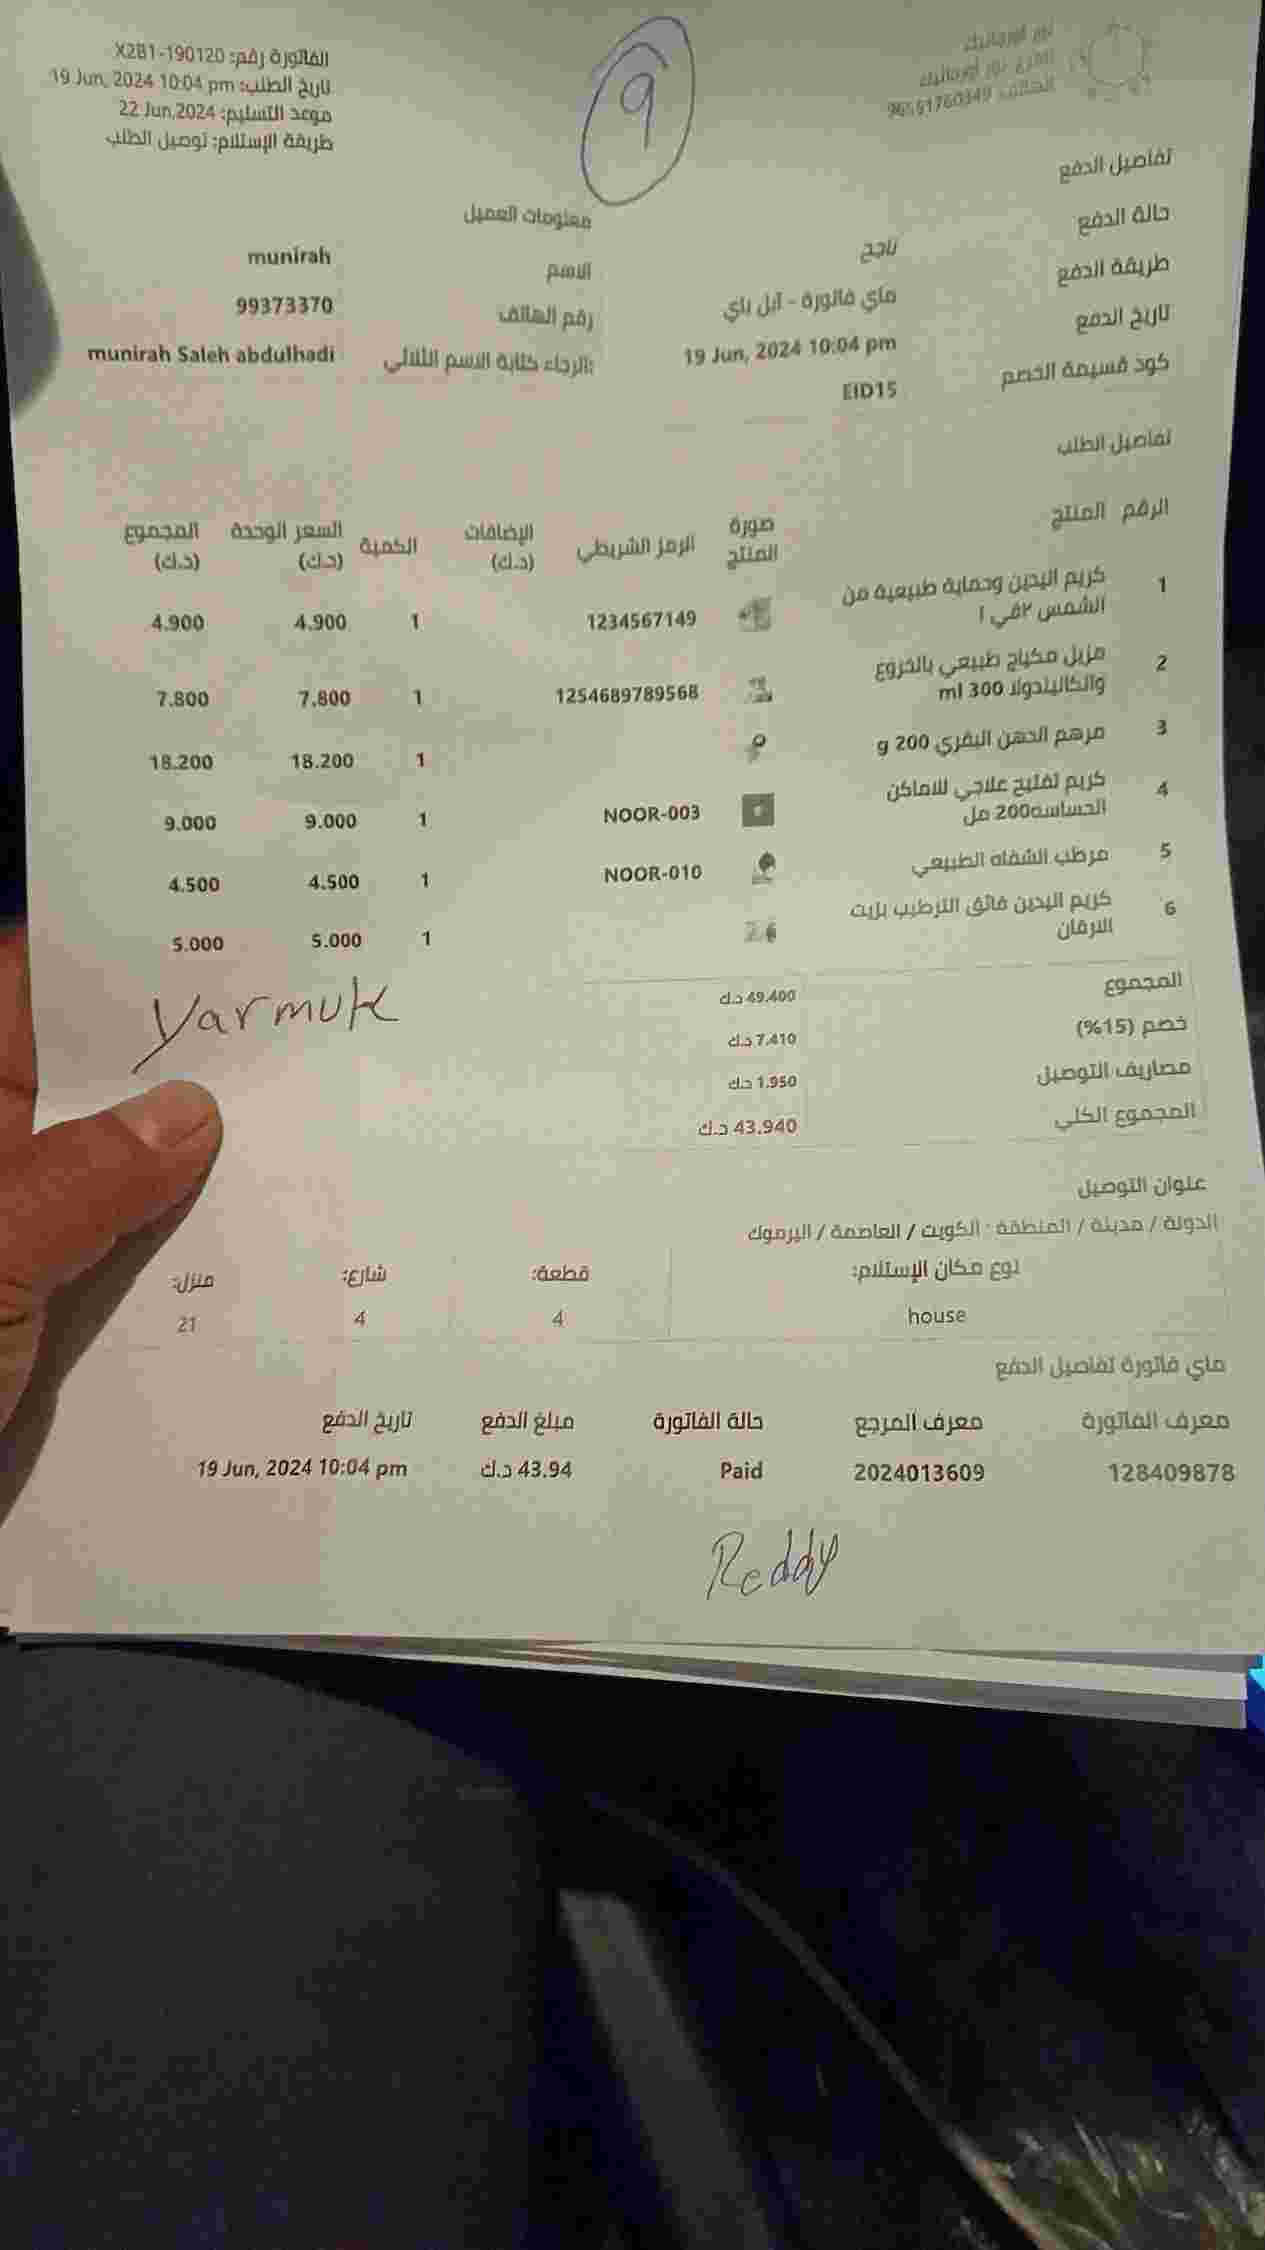 نور اورجانيك
الفرع: نور اورجانيك
الهاتف: 96591760349
9
الفاتورة رقم: X2B1-190120
تاريخ الطلب: 19 Jun, 2024 10:04 pm
موعد التسليم: 22 Jun,2024
طريقة الإستلام: توصيل الطلب
تفاصيل الدفع
حالة الدفع ناجح
طريقة الدفع ماي فاتورة - آبل باي
تاريخ الدفع 19 Jun, 2024 10:04 pm
كود قسيمة الخصم EID15
معلومات العميل
الاسم munirah
رقم الهاتف 99373370
الرجاء كتابة الاسم الثلاثي: munirah Saleh abdulhadi
تفاصيل الطلب
الرقم المنتج صورة المنتج الرمز الشريطي الإضافات (د.ك) الكمية السعر الوحدة (د.ك) المجموع (د.ك)
1 كريم اليدين وحماية طبيعية من الشمس ٢في ١ 1234567149 1 4.900 4.900
2 مزيل مكياج طبيعي بالخروع والكاليندولا 300 ml 1254689789568 1 7.800 7.800
3 مرهم الدهن البقري 200 g 1 18.200 18.200
4 كريم تفتيح علاجي للاماكن الحساسه200 مل NOOR-003 1 9.000 9.000
5 مرطب الشفاه الطبيعي NOOR-010 1 4.500 4.500
6 كريم اليدين فائق الترطيب بزيت الارقان 1 5.000 5.000
المجموع 49.400 د.ك
خصم (15%) 7.410 د.ك
مصاريف التوصيل 1.950 د.ك
المجموع الكلي 43.940 د.ك
Yarmuk
عنوان التوصيل
الدولة / مدينة / المنطقة : الكويت / العاصمة / اليرموك
نوع مكان الإستلام: قطعة: شارع: منزل:
house 4 4 21
ماي فاتورة تفاصيل الدفع
معرف الفاتورة معرف المرجع حالة الفاتورة مبلغ الدفع تاريخ الدفع
128409878 2024013609 Paid 43.94 د.ك 19 Jun, 2024 10:04 pm
Reddy